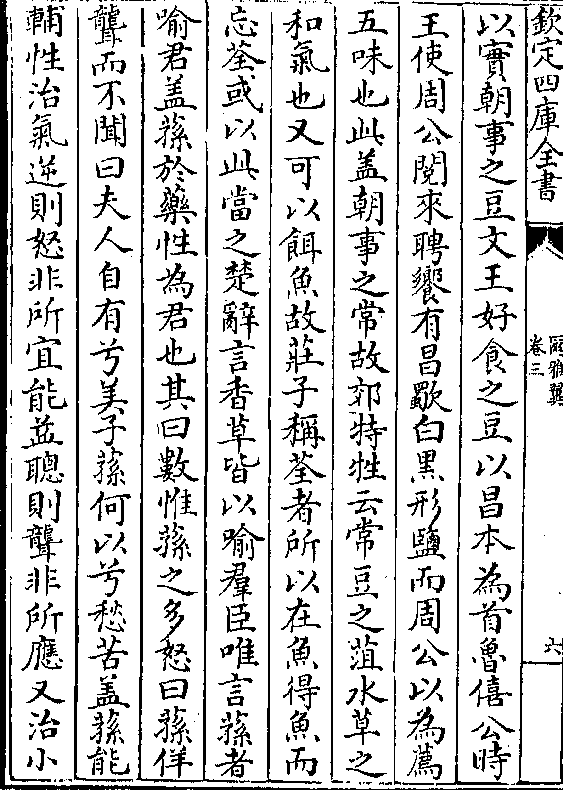 欽定四庫全書
爾雅翼
卷三
六
以實朝事之豆文王好食之豆以昌本為首魯僖公時
王使周公閱來聘饗有昌歜白黑形鹽而周公以為薦
五味也此盖朝事之常故郊特牲云常豆之菹水草之
和氣也又可以餌魚故莊子稱荃者所以在魚得魚而
忘荃或以此當之楚辭言香草皆以喻羣臣唯言蓀者
喻君盖蓀於藥性為君也其曰數惟蓀之多怒曰蓀佯
聾而不聞曰夫人自有兮美子蓀何以兮愁苦盖蓀能
輔性治氣逆則怒非所宜能益聰則聾非所應又治小